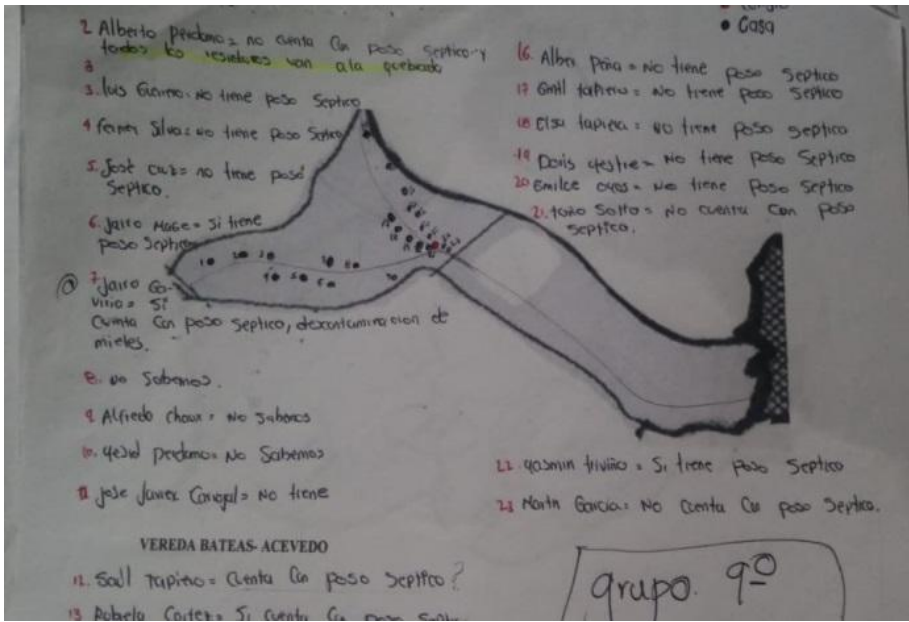 Casa
2 Alberto perdomo = no cuenta Con poso septico y
todos los residuos van ala quebrada
3
3. luis Guerrero = no tiene poso Septico
4 ferner Silva = no tiene poso Septico
5. José cruz = no tiene poso
Septico.
6. Jairo Mace = Si tiene
poso Septico
7. Jairo Ga-
viria = Si
Cuenta Con poso septico, descontaminacion de
mieles.
8. no Sabemos.
9. Alfredo = No sabemos
10. yesid perdomo = No Sabemos
11 Jose Javier Carvajal = No tiene
VEREDA BATEAS- ACEVEDO
12. Saúl tapiero = Cuenta Con poso septico?
13 Cortez = Si Cuenta Con poso
16. Alber Peña = No tiene poso Septico
17 tapiero = No tiene poso Septico
18 Elsa tapiera = no tiene poso septico
19 Doris = No tiene Poso Septico
20 Emilce = No tiene Poso Septico
21. toño Sotto = No cuenta Con poso
septico.
22. yasmin triviño = Si tiene poso Septico
23 Martin Garcia = No Cuenta Con poso Septico.
grupo. 9º